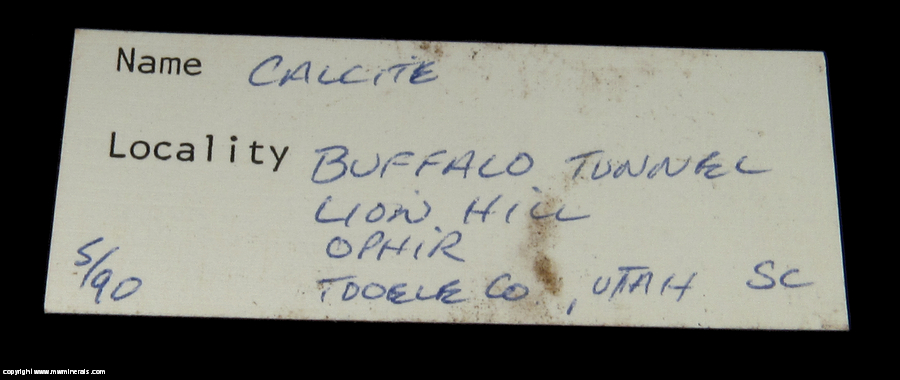 Name CALCITE
Locality BUFFALO TUNNEL
LION HILL
OPHIR
5/90 TOOELE CO, UTAH SC
copyright www.mwminerals.com